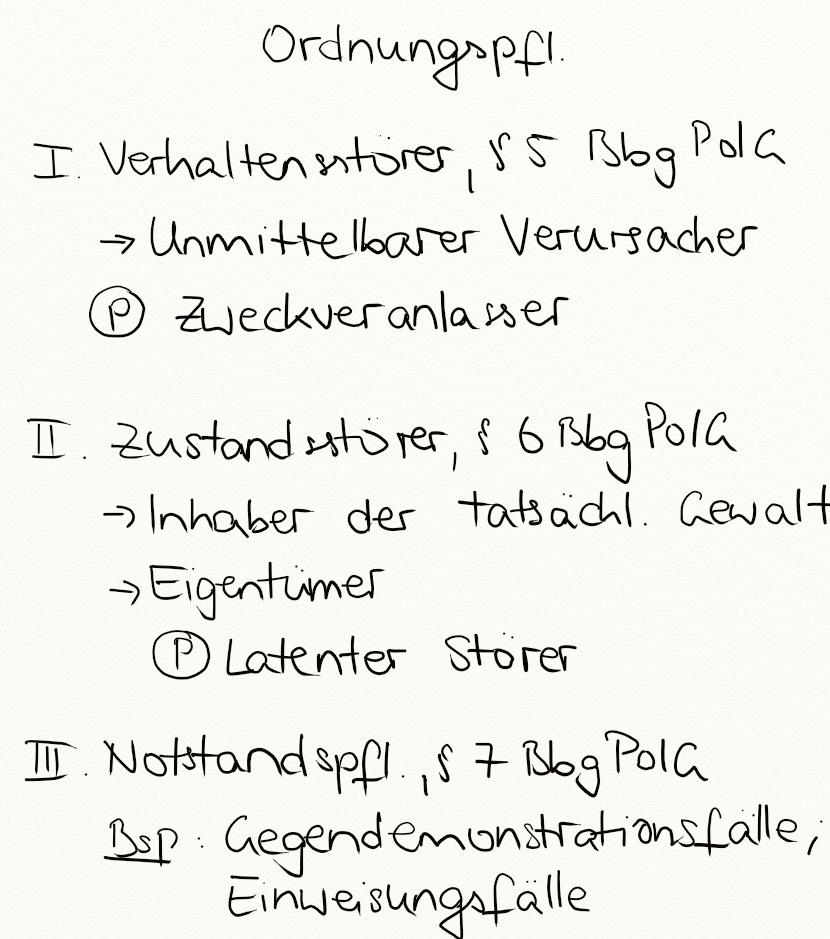 Ordnungspfl.
I. Verhaltensstörer, § 5 BbgPolG
→ Unmittelbarer Verursacher
Ⓟ Zweckveranlasser
II. Zustandsstörer, § 6 BbgPolG
→ Inhaber der tatsächl. Gewalt
→ Eigentümer
Ⓟ Latenter Störer
III. Notstandspfl., § 7 BbgPolG
Bsp: Gegendemonstrationsfälle,
Einweisungsfälle